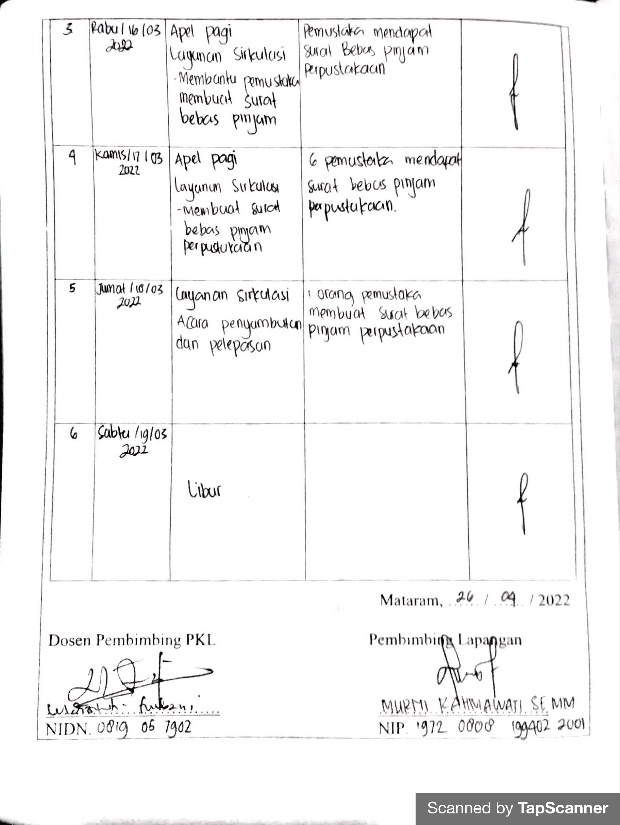 3 Rabu/16/03 2022
Apel pagi
Layanan Sirkulasi
-Membantu pemustaka
membuat surat
bebas pinjam
Pemustaka mendapat
surat Bebas pinjam
Perpustakaan
4 Kamis/17/03 2022
Apel pagi
Layanan Sirkulasi
-Membuat surat
bebas pinjam
perpustakaan
6 pemustaka mendapat
surat bebas pinjam
perpustakaan.
5 Jumat/18/03 2022
Layanan Sirkulasi
Acara penyambutan
dan pelepasan
1 orang pemustaka
membuat surat bebas
pinjam perpustakaan
6 Sabtu/19/03 2022
Libur
Mataram, 26 / 04 / 2022
Dosen Pembimbing PKL
NIDN. 0819 05 7902
Pembimbing Lapangan
MURNI RAHMAWATI, SE. MM
NIP. 1972 0808 199402 2001
Scanned by TapScanner